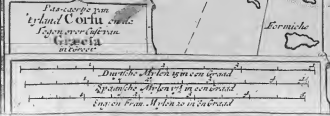 Pas-caertje van
't Eyland Corfu en de
Tegen over Cust van
Græcia
in 't Groot
Formiche
Duytsche Mylen 15 in een Graad
Spaansche Mylen 17½ in een Graad
Eng: en Fran: Mylen 20 in en Graad